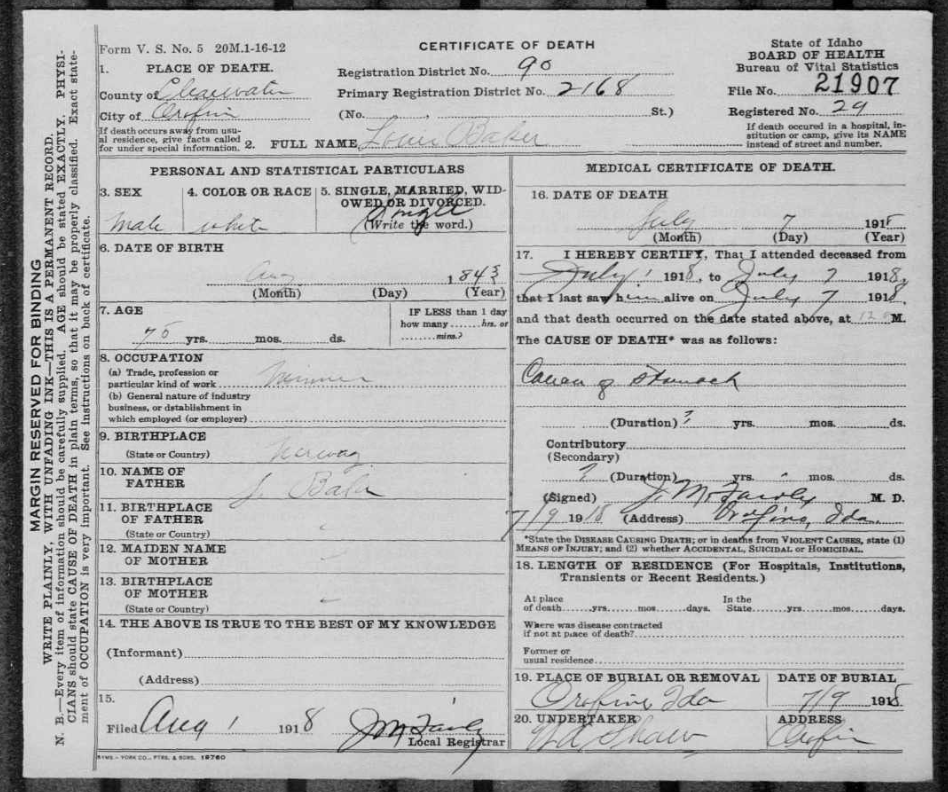 Form V. S. No. 5 20M.1-16-12
CERTIFICATE OF DEATH
State of Idaho
BOARD OF HEALTH
Bureau of Vital Statistics
File No. 21907
Registered No. 29
If death occured in a hospital, institution or camp, give its NAME instead of street and number.
1. PLACE OF DEATH.
County of Clearwater
City of Orofino
If death occurs away from usual residence, give facts called for under special information.
Registration District No. 90
Primary Registration District No. 2168
(No. St.)
2. FULL NAME Louie Baker
PERSONAL AND STATISTICAL PARTICULARS
3. SEX
male
4. COLOR OR RACE
white
5. SINGLE, MARRIED, WIDOWED OR DIVORCED.
Single
(Write the word.)
6. DATE OF BIRTH
Aug 1843
(Month) (Day) (Year)
7. AGE
75 yrs. mos. ds.
IF LESS than 1 day how many hrs. or mins.?
8. OCCUPATION
(a) Trade, profession or particular kind of work
(b) General nature of industry business, or dstablishment in which employed (or employer)
9. BIRTHPLACE
(State or Country) Norway
10. NAME OF FATHER
Baker
11. BIRTHPLACE OF FATHER
(State or Country)
12. MAIDEN NAME OF MOTHER
13. BIRTHPLACE OF MOTHER
(State or Country)
14. THE ABOVE IS TRUE TO THE BEST OF MY KNOWLEDGE
(Informant)
(Address)
15.
Filed Aug 1 1918 J M Fairly
Local Registrar
MEDICAL CERTIFICATE OF DEATH.
16. DATE OF DEATH
July 7 1918
(Month) (Day) (Year)
17. I HEREBY CERTIFY, That I attended deceased from
July 1 1918, to July 7 1918
that I last saw him alive on July 7 1918.
and that death occurred on the date stated above, at 12 M.
The CAUSE OF DEATH* was as follows:
Cancer of Stomach
(Duration) ? yrs. mos. ds.
Contributory
(Secondary)
? (Duration) yrs. mos. ds.
(Signed) J. M. Fairly M. D.
7/9 1918 (Address) Orofino, Ida.
*State the DISEASE CAUSING DEATH; or in deaths from VIOLENT CAUSES, state (1) MEANS OF INJURY; and (2) whether ACCIDENTAL, SUICIDAL or HOMICIDAL.
18. LENGTH OF RESIDENCE (For Hospitals, Institutions, Transients or Recent Residents.)
At place of death yrs. mos. days. In the State yrs. mos. days.
Where was disease contracted if not at place of death?
Former or usual residence
19. PLACE OF BURIAL OR REMOVAL
Orofino Ida
DATE OF BURIAL
7/9 1918
20. UNDERTAKER
Shaw
ADDRESS
Orofino
SYMS.-YORK CO., PTRS. & BNDRS. 19760
MARGIN RESERVED FOR BINDING
WRITE PLAINLY, WITH UNFADING INK—THIS IS A PERMANENT RECORD.
N. B.—Every item of information should be carefully supplied. AGE should be stated EXACTLY. PHYSICIANS should state CAUSE OF DEATH in plain terms, so that it may be properly classified. Exact statement of OCCUPATION is very important. See instructions on back of certificate.